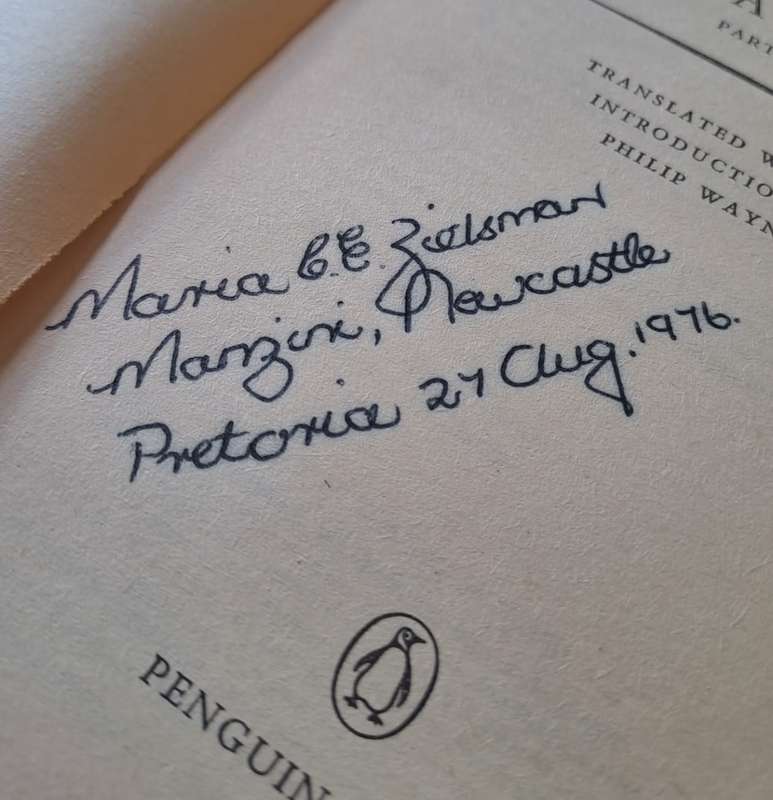 PART
TRANSLATED W
INTRODUCTIO
PHILIP WAYN
Maria C.E. Zielsman
Manzini, Newcastle
Pretoria 27 Aug. 1976.
PENGUIN